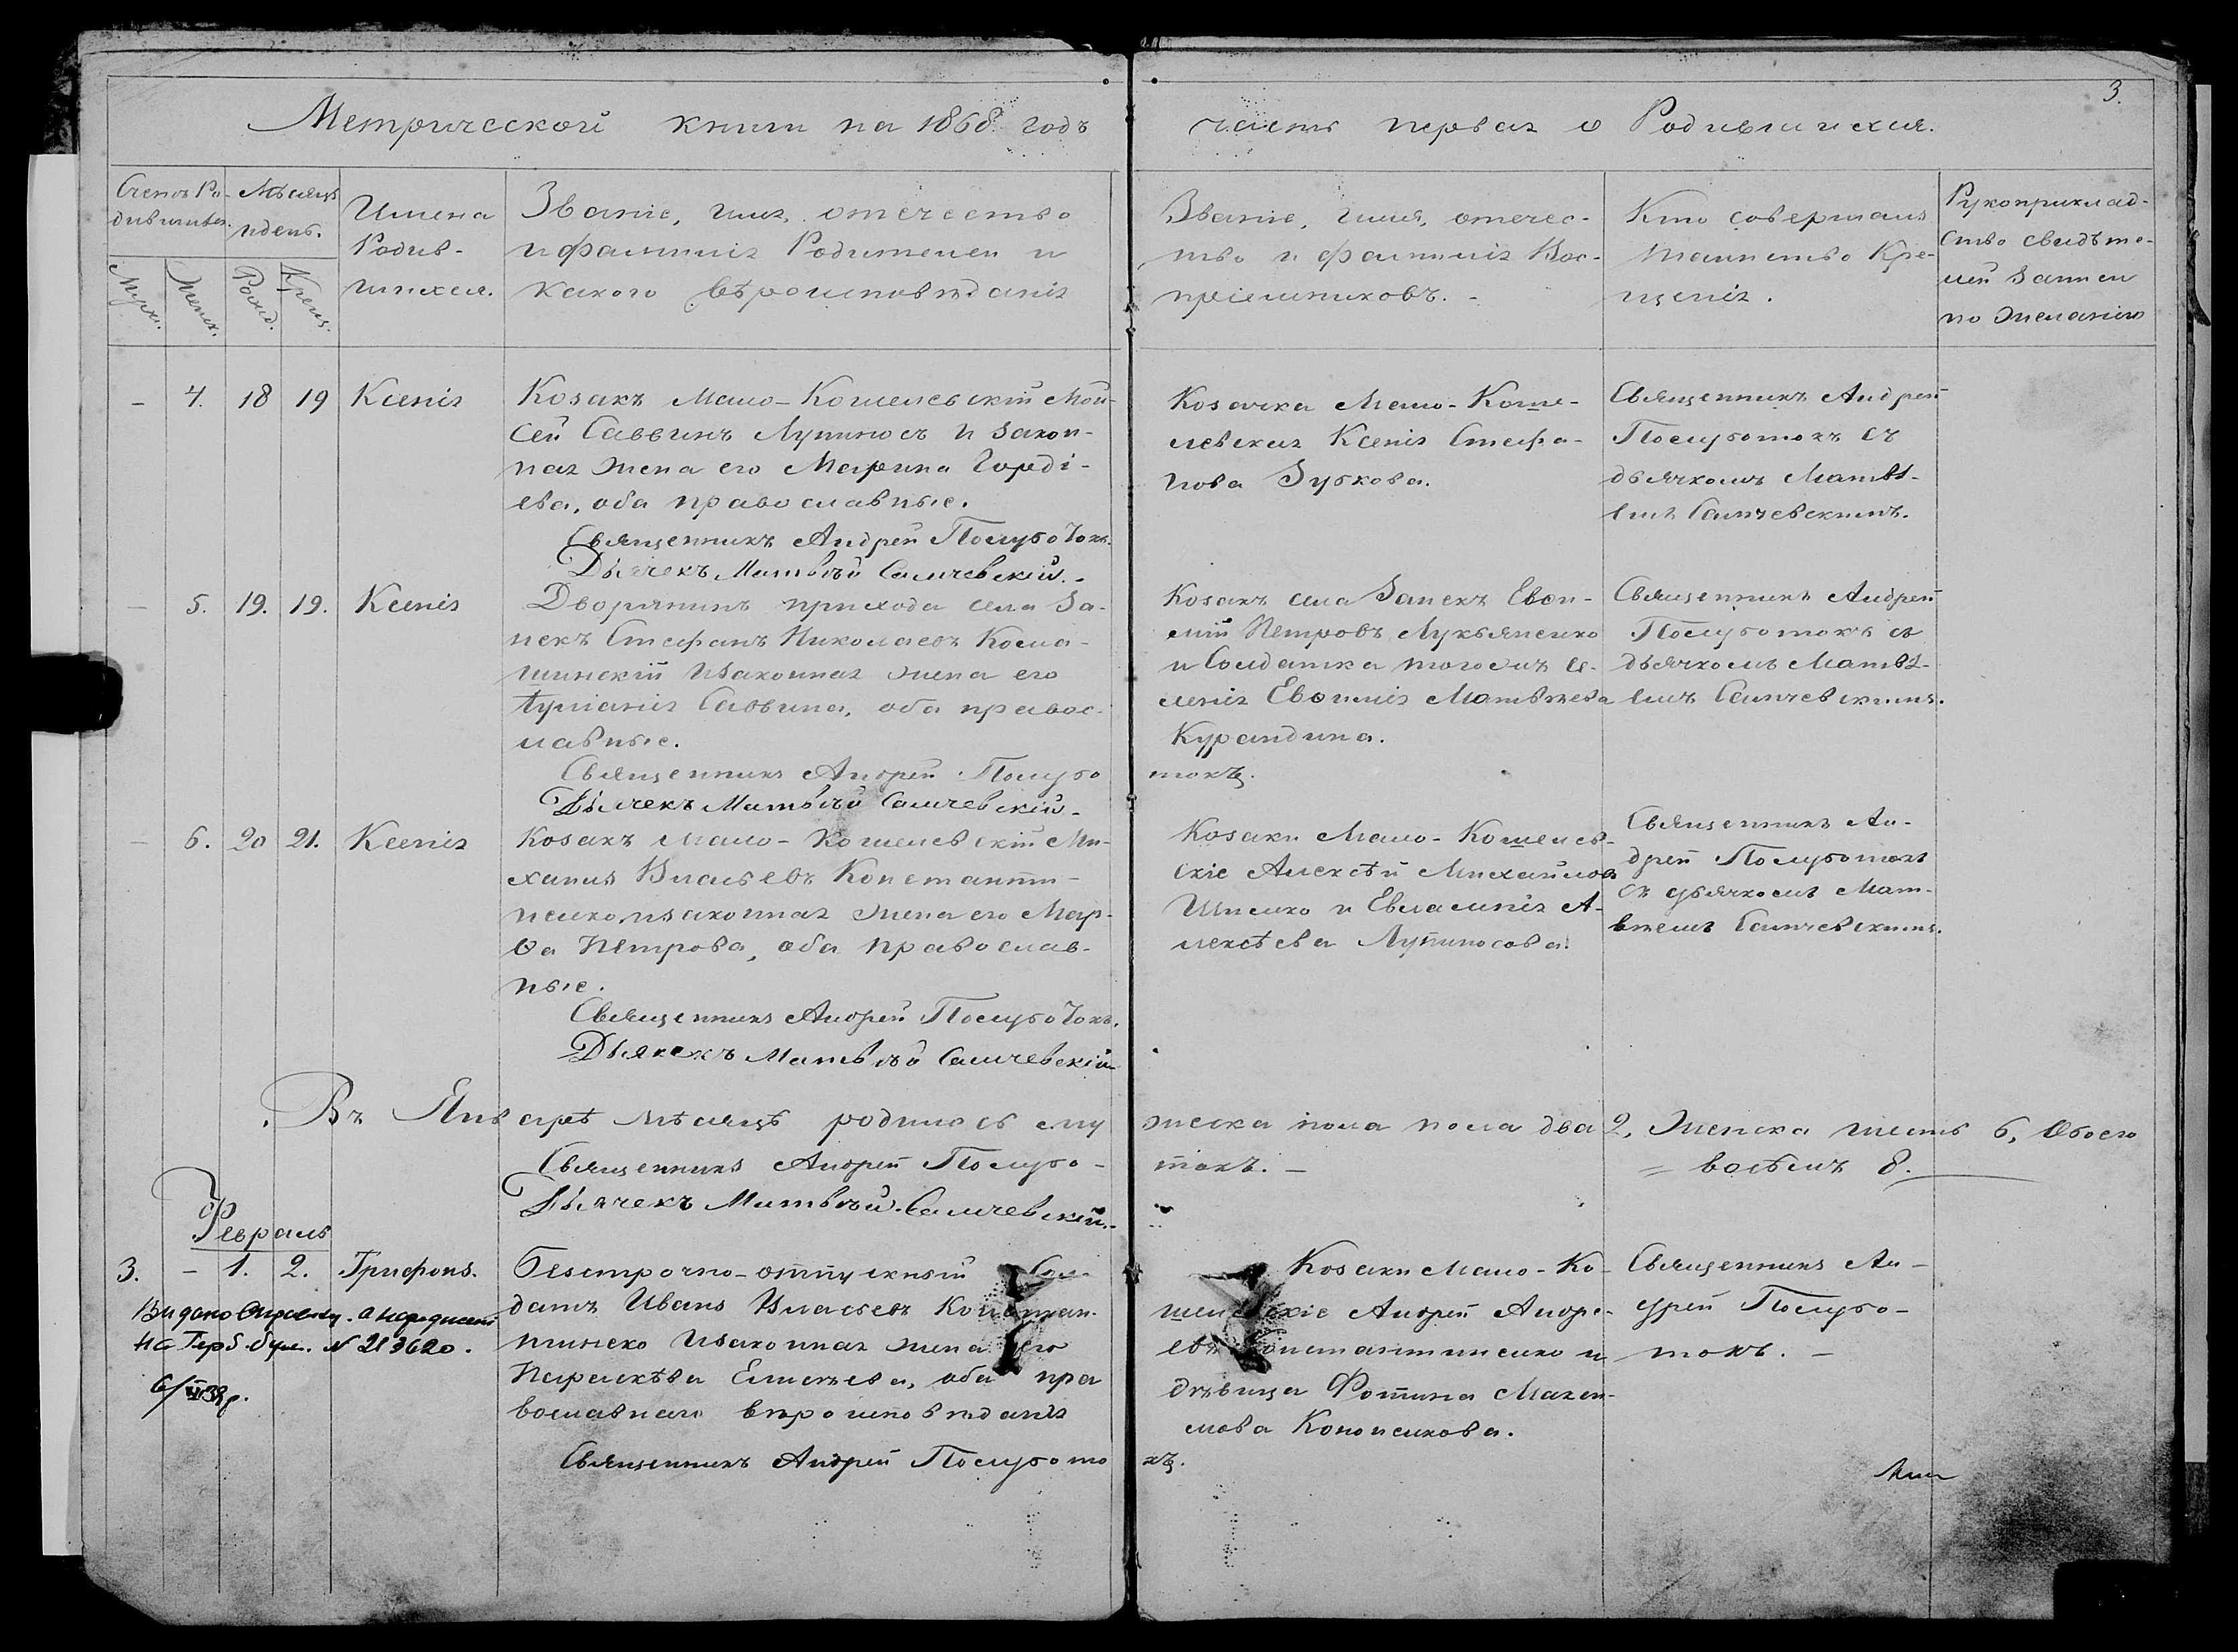 3.
Метрической книги на 1868 годъ часть первая о Родившихся.
Счетъ Ро-
дившихся.
Мѣсяцъ
и день.
Муж.
Женск.
Рожд.
Крещ.
Имена
Родив-
шихся.
Званіе, имя, отечество
и фамилія Родителей и
какого вѣроисповѣданія
Званіе, имя, отечес-
тво и фамилія Вос-
пріемниковъ.
Кто совершалъ
таинство Кре-
щенія.
Рукоприклад-
ство свидѣте-
лей записи
по желанію
- 4. 18 19 Ксенія
Козакъ Мало-Кошелевскій Мои-
сей Саввинъ Лупиносъ и закон-
ная жена его Марина Гордѣ-
ева, оба православные.
Священникъ Андрей Полуботокъ.
Дьячекъ Матвѣй Самчевскій.
Козачка Мало-Коше-
левская Ксенія Стефа-
нова Зубкова.
Священникъ Андрей
Полуботокъ съ
дьячкомъ Матвѣ-
емъ Самчевскимъ.
- 5. 19. 19. Ксенія
Дворянинъ прихода села За-
Стефанъ Николаевъ
и законная жена его
Іуліанія Саввина, оба правос-
лавные.
Священникъ Андрей Полубо
токъ.
Дьячекъ Матвѣй Самчевскій
Козакъ села Евѳи-
мій Петровъ Лукьяненко
и Солдатка того же се-
ленія Евѳимія Матвѣева
Курандина.
Священникъ Андрей
Полуботокъ съ
дьячкомъ Матвѣ-
емъ Самчевскимъ.
- 6. 20 21. Ксенія
Козакъ Мало-Кошелевскій Ми-
хаилъ Власьевъ Константи-
ненко и законная жена его Мар-
ѳа Петрова, оба православ-
ные.
Священникъ Андрей Полуботокъ.
Дьячекъ Матвѣй Самчевскій
Козаки Мало-Кошелев-
скіе Алексѣй Михайловъ
Шпилько и Евламнія А-
лексѣева Лупиносова.
Священникъ Ан-
дрей Полуботокъ
съ дьячкомъ Мат-
вѣемъ Самчевскимъ.
Въ Январѣ мѣсяцѣ родилось му
жеска пола пола два 2, Женска шесть 6, Обоего
= восѣмъ 8.
Священникъ Андрей Полубо-
токъ.
Дьячекъ Матвѣй Самчевскій.
Февраль
3. - 1. 2. Трифонъ.
Видано о народженні
на Герб. бум. № 213620.
Безсрочно-отпускный Сол-
датъ Иванъ Власьевъ Констан-
тиненко и законная жена его
Параскѣва Елисѣева, оба пра
вославнаго вѣроисповѣданія
Священникъ Андрей Полубото
къ.
Козаки Мало-Ко-
шелевскіе Андрей Андре-
евъ Константиненко и
дѣвица Фотина Макси-
мова Кононенкова.
Священникъ Ан-
дрей Полубо-
токъ.